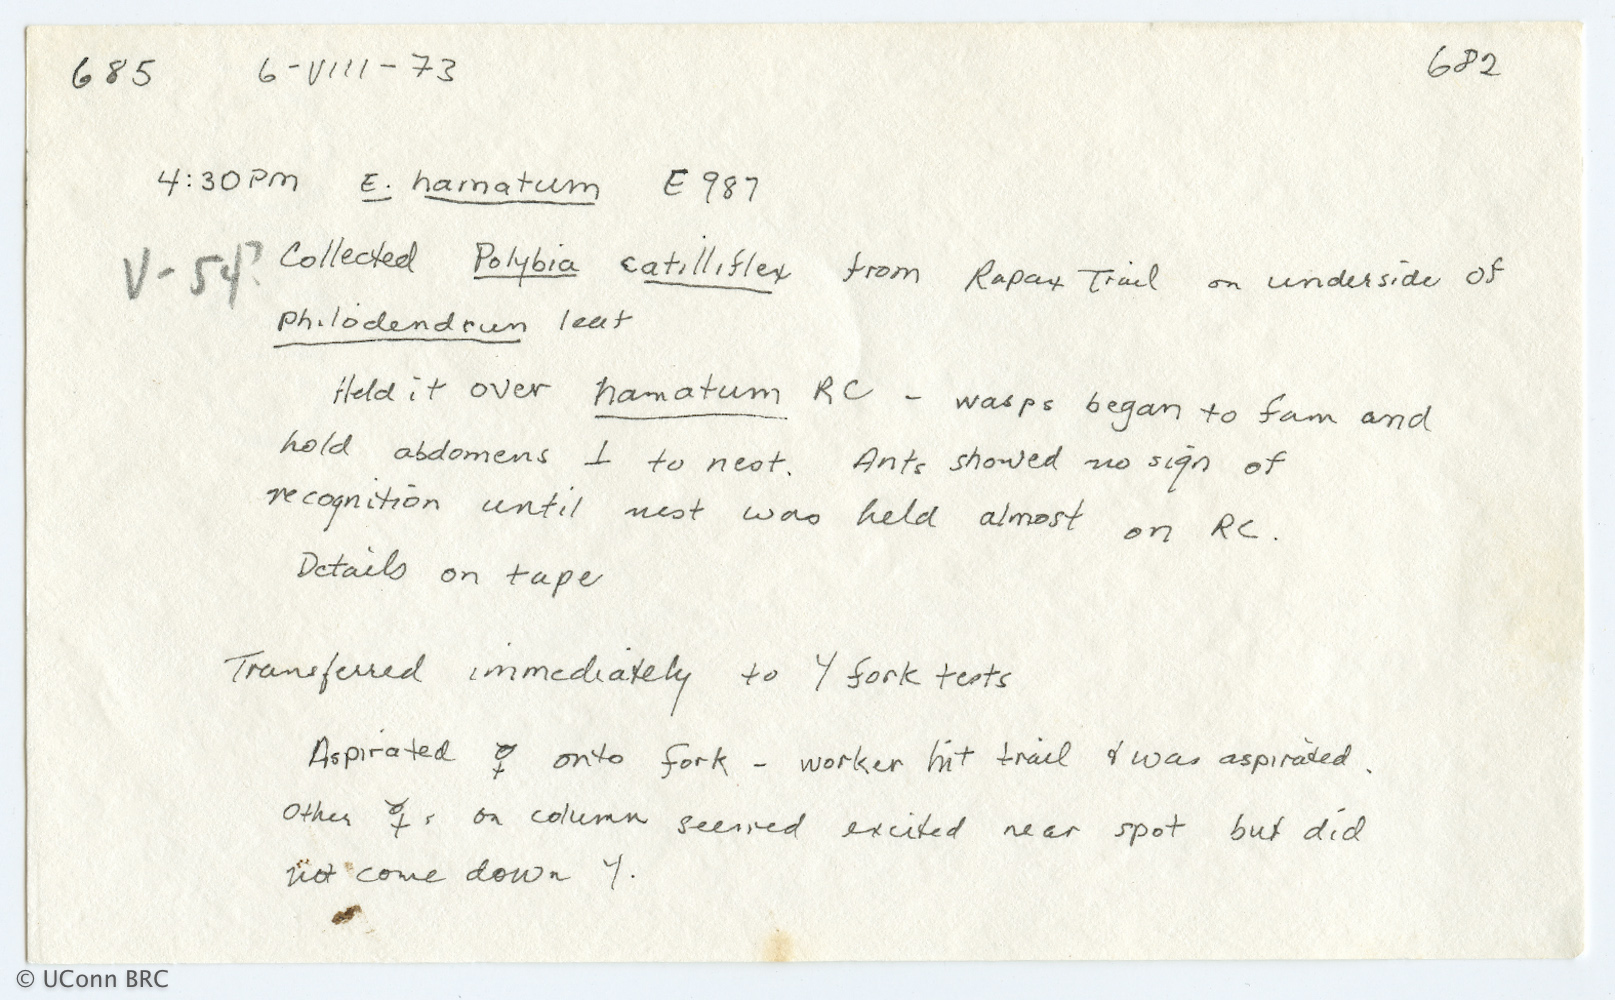 685 6-VIII-73 682
4:30PM E. hamatum E987
V-54? Collected Polybia catilliflex from Rapax Trail on underside of
philodendrun leaf
Held it over hamatum RC - wasps began to fam and
hold abdomens ⊥ to nest. Ants showed no sign of
recognition until nest was held almost on RC.
Details on tape
Transferred immediately to Y fork tests
Aspirated ☿ onto fork - worker hit trail & was aspirated.
Other ☿s on column seemed excited near spot but did
not come down Y.
© UConn BRC